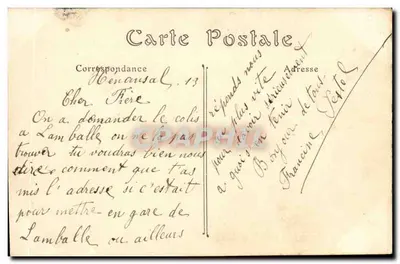 Carte Postale
Correspondance
Adresse
Henansal. 13
Cher Frère
On a demander le colis
a Lamballe on ne le pas
trouver tu voudras bien nous
dire comment que t'as
mis l'adresse si c'estait
pour mettre en gare de
Lamballe ou ailleurs
réponds nous
plus vite
pour savoir sérieusement
a quoi s'en tenir
Bonjour de tous
Francine